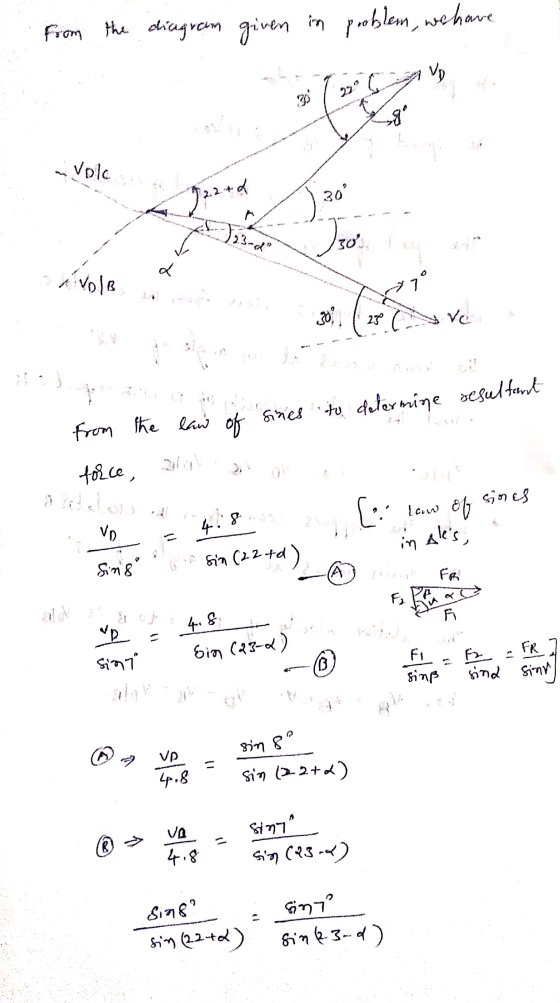 From the diagram given in problem, we have
VD
30° 22° 8°
VD/C
22+α
30°
A
23-α°
30°
α
VD/B
7°
30° 23° VC
From the law of sines to determine resultant
force,
VD / sin8° = 4.8 / sin(22+α) — Ⓐ
[∵ law of sines
in Δk's,
FR
F2 β γ α
F1
VD / sin7° = 4.8 / sin(23-α) — Ⓑ
F1 / sinβ = F2 / sinα = FR / sinγ]
Ⓐ ⇒ VD / 4.8 = sin8° / sin(22+α)
Ⓑ ⇒ VD / 4.8 = sin7° / sin(23-α)
sin8° / sin(22+α) = sin7° / sin(23-α)